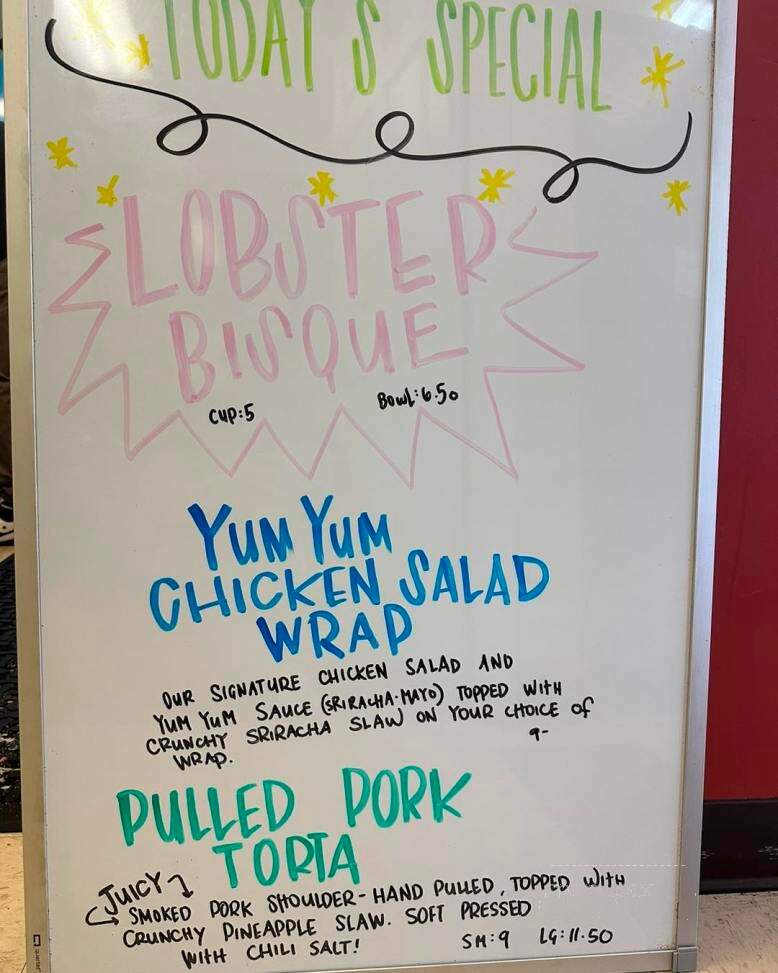 TODAY'S SPECIAL
LOBSTER
BISQUE
CUP:5 BOWL:6.50
YUM YUM
CHICKEN SALAD
WRAP
OUR SIGNATURE CHICKEN SALAD AND
YUM YUM SAUCE (SRIRACHA-MAYO) TOPPED WITH
CRUNCHY SRIRACHA SLAW ON YOUR CHOICE OF
WRAP. 9-
PULLED PORK
TORTA
JUICY
SMOKED PORK SHOULDER-HAND PULLED, TOPPED WITH
CRUNCHY PINEAPPLE SLAW. SOFT PRESSED
WITH CHILI SALT! SM:9 LG:11.50